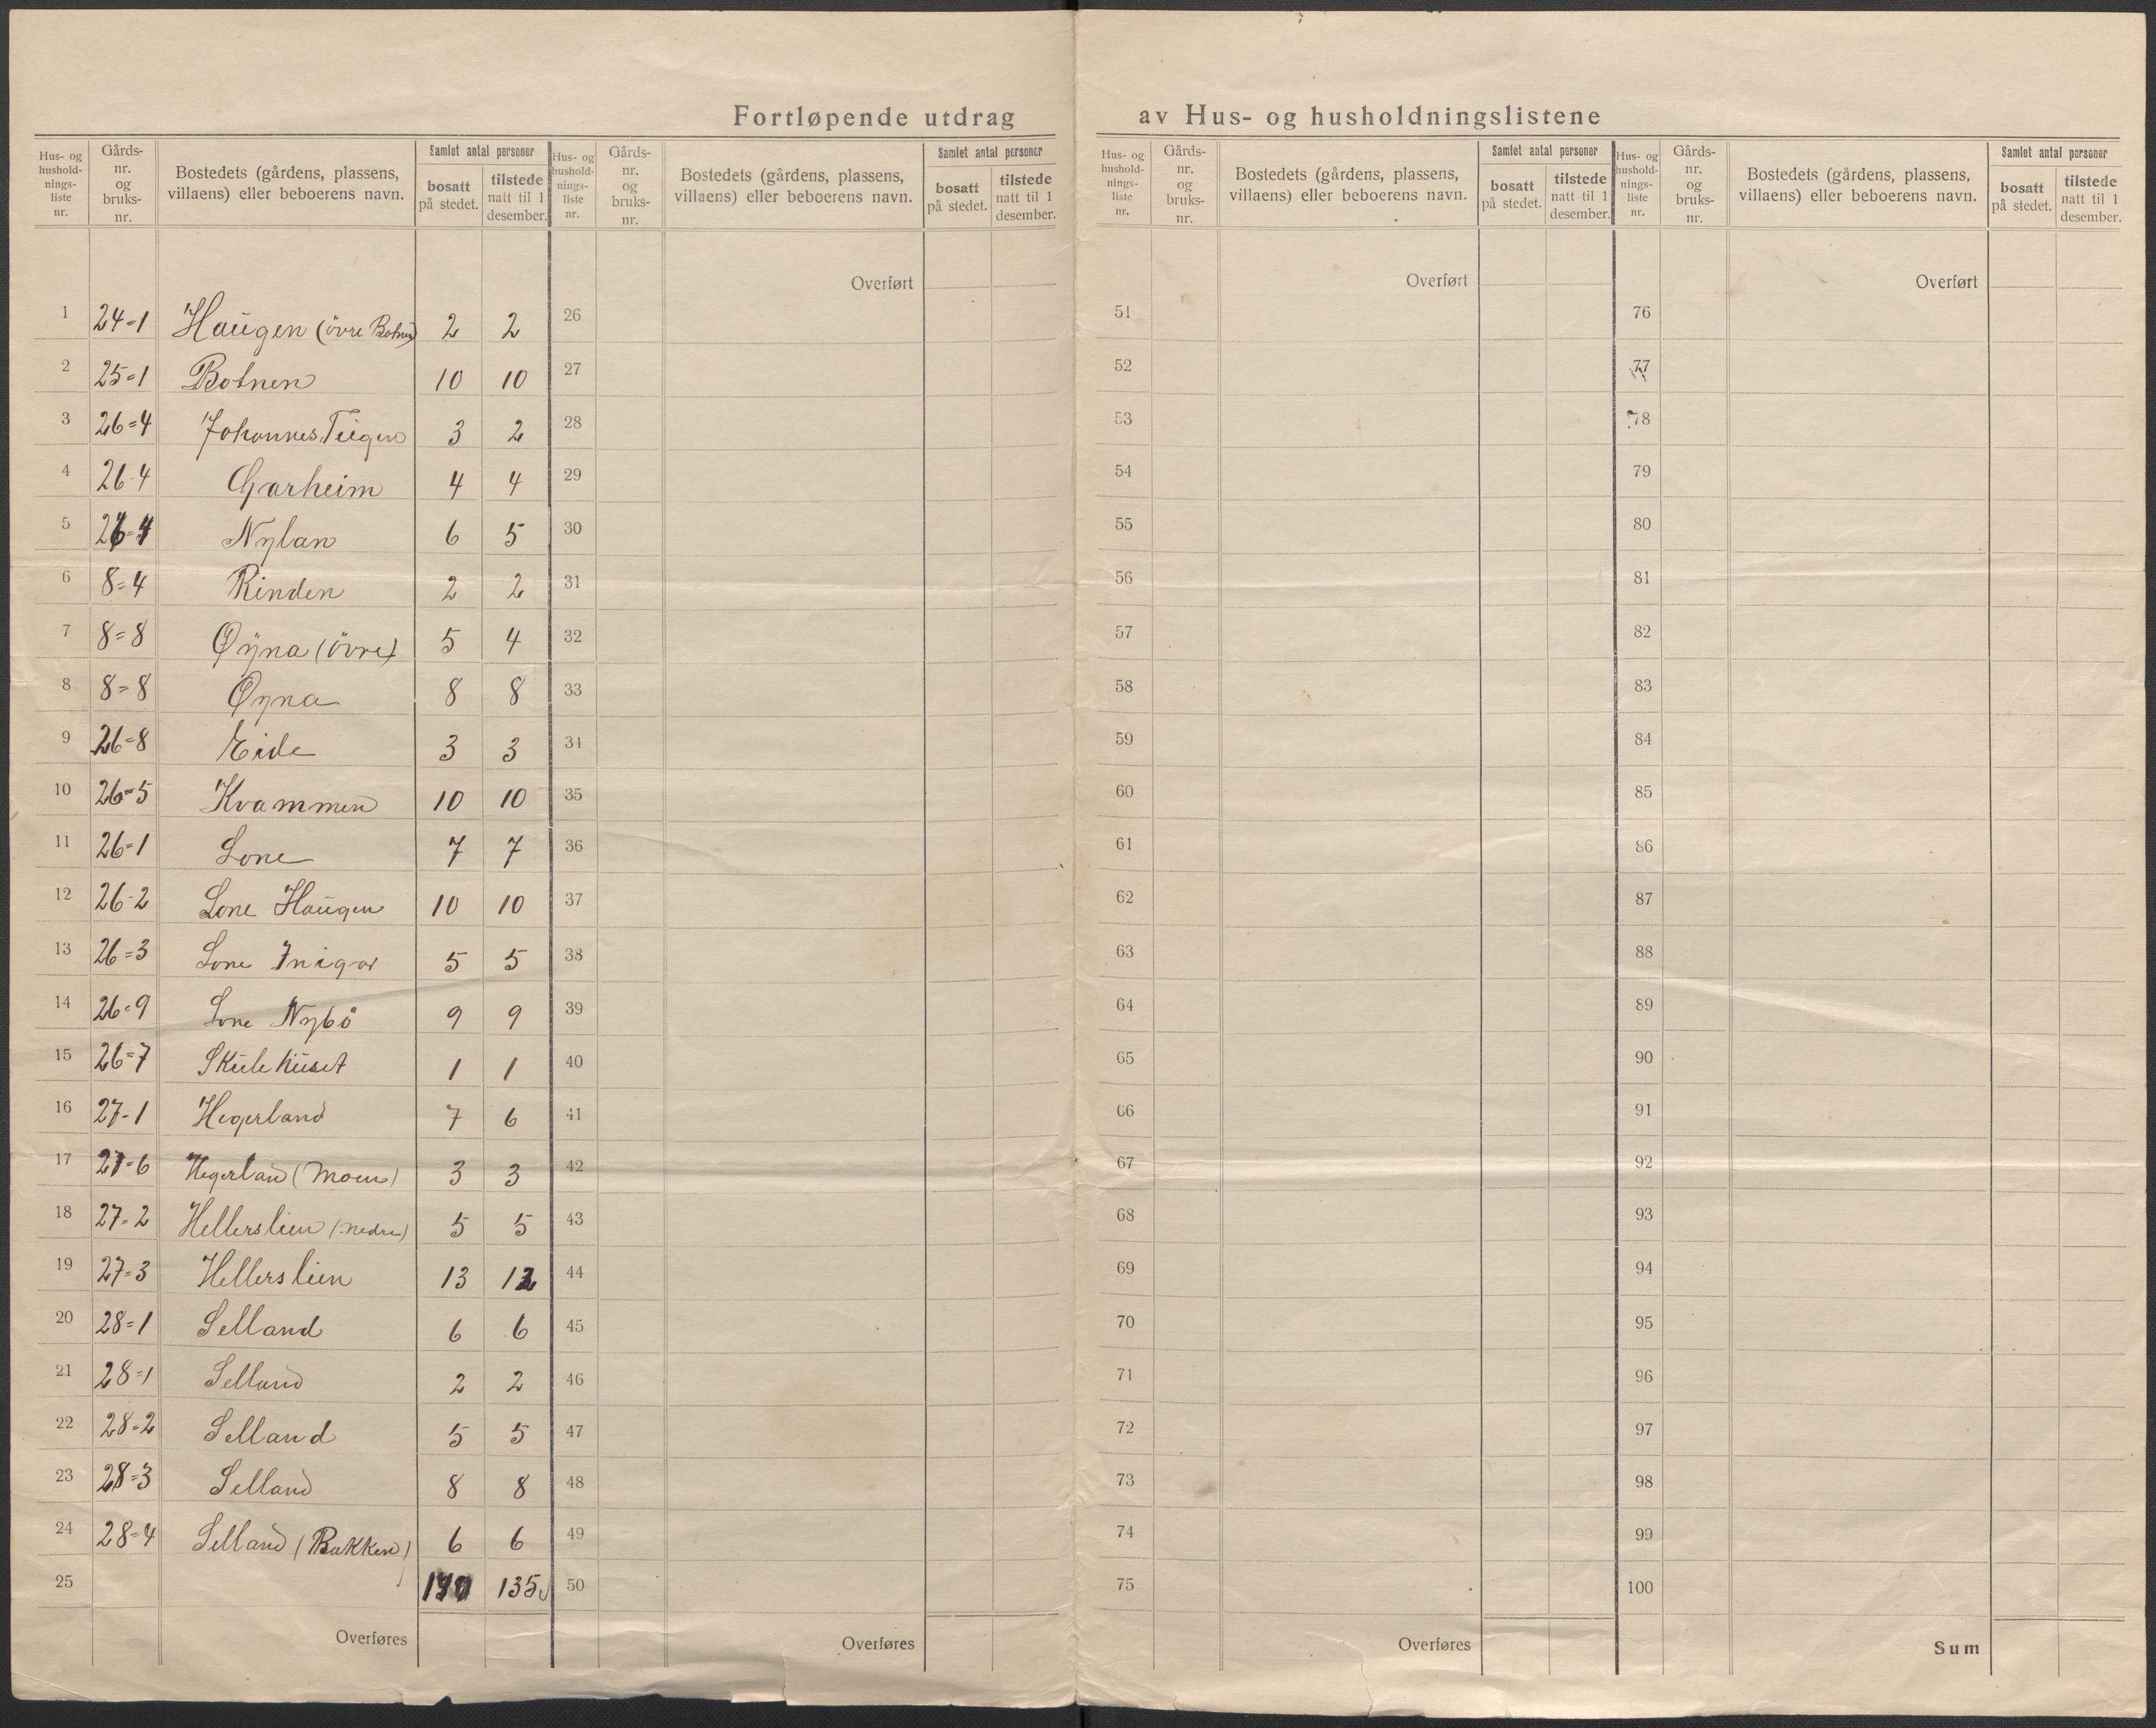 Fortløpende utdrag av Hus- og husholdningslistene
Hus- og husholdnings-liste nr. Gårds-nr. og bruks-nr. Bostedets (gårdens, plassens, villaens) eller beboerens navn. Samlet antal personer bosatt på stedet. tilstede natt til 1 desember.
Hus- og husholdnings-liste nr. Gårds-nr. og bruks-nr. Bostedets (gårdens, plassens, villaens) eller beboerens navn. Samlet antal personer bosatt på stedet. tilstede natt til 1 desember.
Hus- og husholdnings-liste nr. Gårds-nr. og bruks-nr. Bostedets (gårdens, plassens, villaens) eller beboerens navn. Samlet antal personer bosatt på stedet. tilstede natt til 1 desember.
Hus- og husholdnings-liste nr. Gårds-nr. og bruks-nr. Bostedets (gårdens, plassens, villaens) eller beboerens navn. Samlet antal personer bosatt på stedet. tilstede natt til 1 desember.
Overført Overført Overført
1 24=1 Haugen (övre Botnen) 2 2 26 51 76
2 25=1 Botnen 10 10 27 52 77
3 26=4 Johannes Teigen 3 2 28 53 78
4 26-4 Garheim 4 4 29 54 79
5 26=4 Nylan 6 5 30 55 80
6 8=4 Rinden 2 2 31 56 81
7 8=8 Øyna (övre) 5 4 32 57 82
8 8=8 Øyna 8 8 33 58 83
9 26=8 Eide 3 3 34 59 84
10 26=5 Kvammen 10 10 35 60 85
11 26=1 Lone 7 7 36 61 86
12 26-2 Lone Haugen 10 10 37 62 87
13 26=3 Lone Inigar 5 5 38 63 88
14 26=9 Lone Nybö 9 9 39 64 89
15 26=7 Skulehuset 1 1 40 65 90
16 27-1 Hegerland 7 6 41 66 91
17 27-6 Hegerland (Moen) 3 3 42 67 92
18 27=2 Hellerslien (nedre) 5 5 43 68 93
19 27=3 Hellerslien 13 12 44 69 94
20 28=1 Selland 6 6 45 70 95
21 28=1 Selland 2 2 46 71 96
22 28=2 Selland 5 5 47 72 97
23 28=3 Selland 8 8 48 73 98
24 28=4 Selland (Bakken) 6 6 49 74 99
25 135 50 75 100
Overføres Overføres Overføres Sum